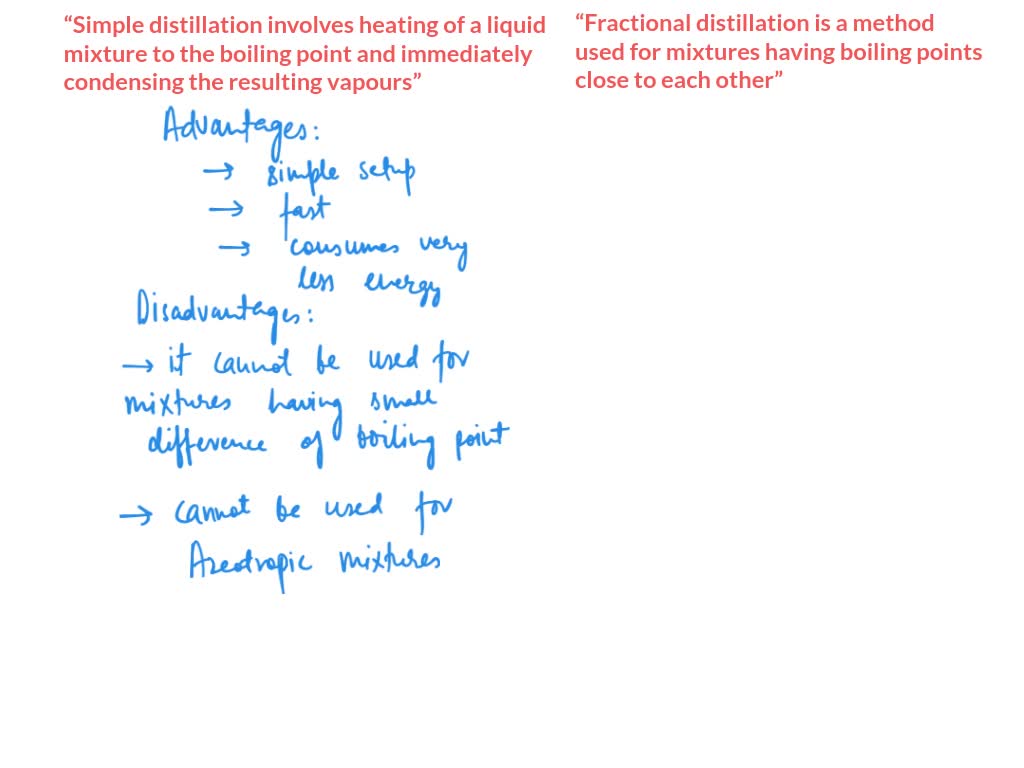 “Simple distillation involves heating of a liquid
mixture to the boiling point and immediately
condensing the resulting vapours”
Advantages:
→ simple setup
→ fast
→ consumes very
less energy
Disadvantages:
→ it cannot be used for
mixtures having small
difference of boiling point
→ cannot be used for
Azeotropic mixtures
“Fractional distillation is a method
used for mixtures having boiling points
close to each other”